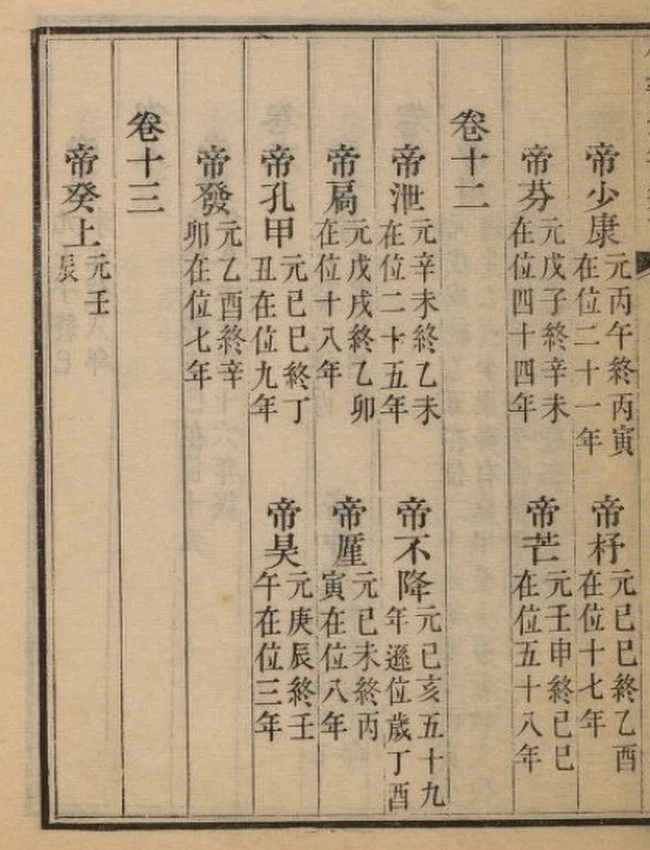 帝少康元丙午終丙寅在位二十一年　帝杼元己巳終乙酉在位十七年
帝芬元戊子終辛未在位四十四年　帝芒元壬申終己巳在位五十八年
卷十二
帝泄元辛未終乙未在位二十五年　帝不降元己亥五十九年遜位歲丁酉
帝扃元戊戌終乙卯在位十八年　帝厪元己未終丙寅在位八年
帝孔甲元己巳終丁丑在位九年　帝昊元庚辰終壬午在位三年
帝發元乙酉終辛卯在位七年
卷十三
帝癸上元壬辰